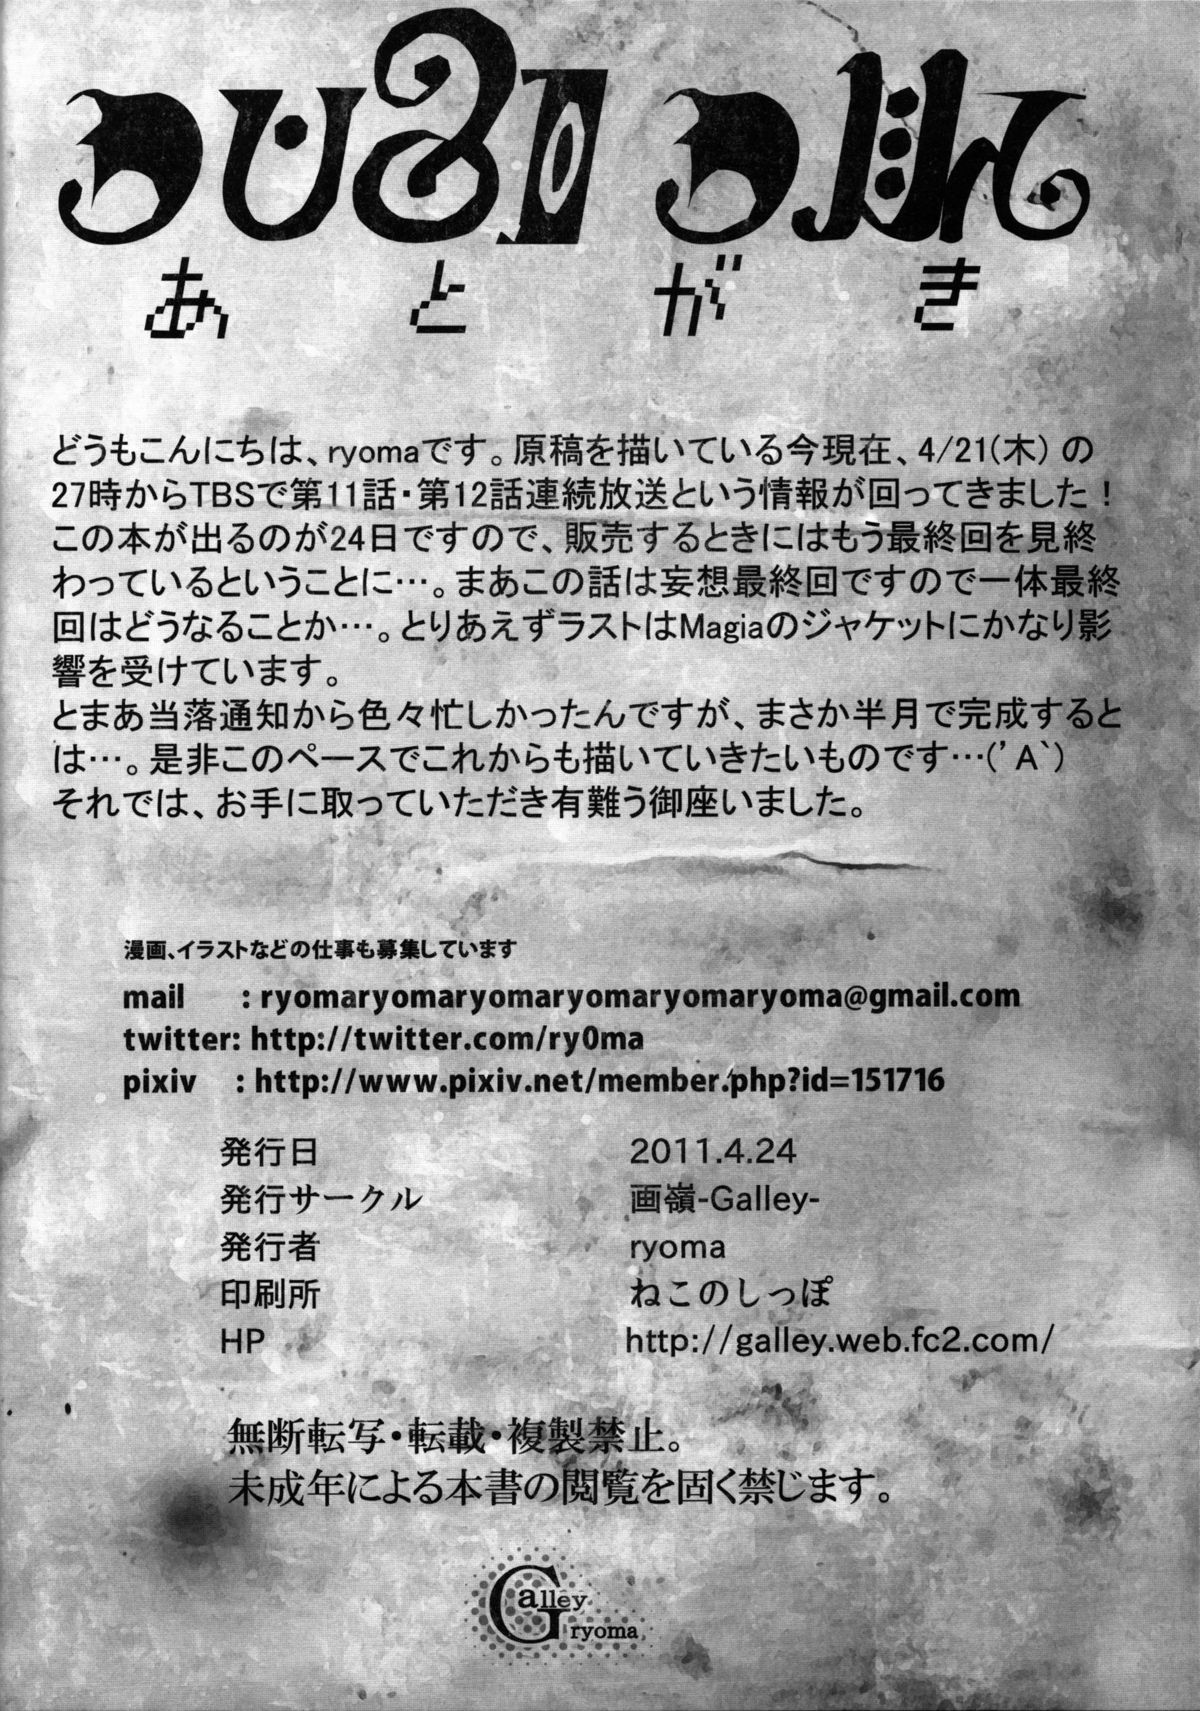 あとがき
どうもこんにちは、ryomaです。原稿を描いている今現在、4/21(木)の
27時からTBSで第11話・第12話連続放送という情報が回ってきました！
この本が出るのが24日ですので、販売するときにはもう最終回を見終
わっているということに…。まあこの話は妄想最終回ですので一体最終
回はどうなることか…。とりあえずラストはMagiaのジャケットにかなり影
響を受けています。
とまあ当落通知から色々忙しかったんですが、まさか半月で完成すると
は…。是非このペースでこれからも描いていきたいものです…('A`)
それでは、お手に取っていただき有難う御座いました。
漫画、イラストなどの仕事も募集しています
mail : ryomaryomaryomaryomaryomaryoma@gmail.com
twitter: http://twitter.com/ry0ma
pixiv : http://www.pixiv.net/member.php?id=151716
発行日 2011.4.24
発行サークル 画嶺-Galley-
発行者 ryoma
印刷所 ねこのしっぽ
HP http://galley.web.fc2.com/
無断転写・転載・複製禁止。
未成年による本書の閲覧を固く禁じます。
Galley
ryoma